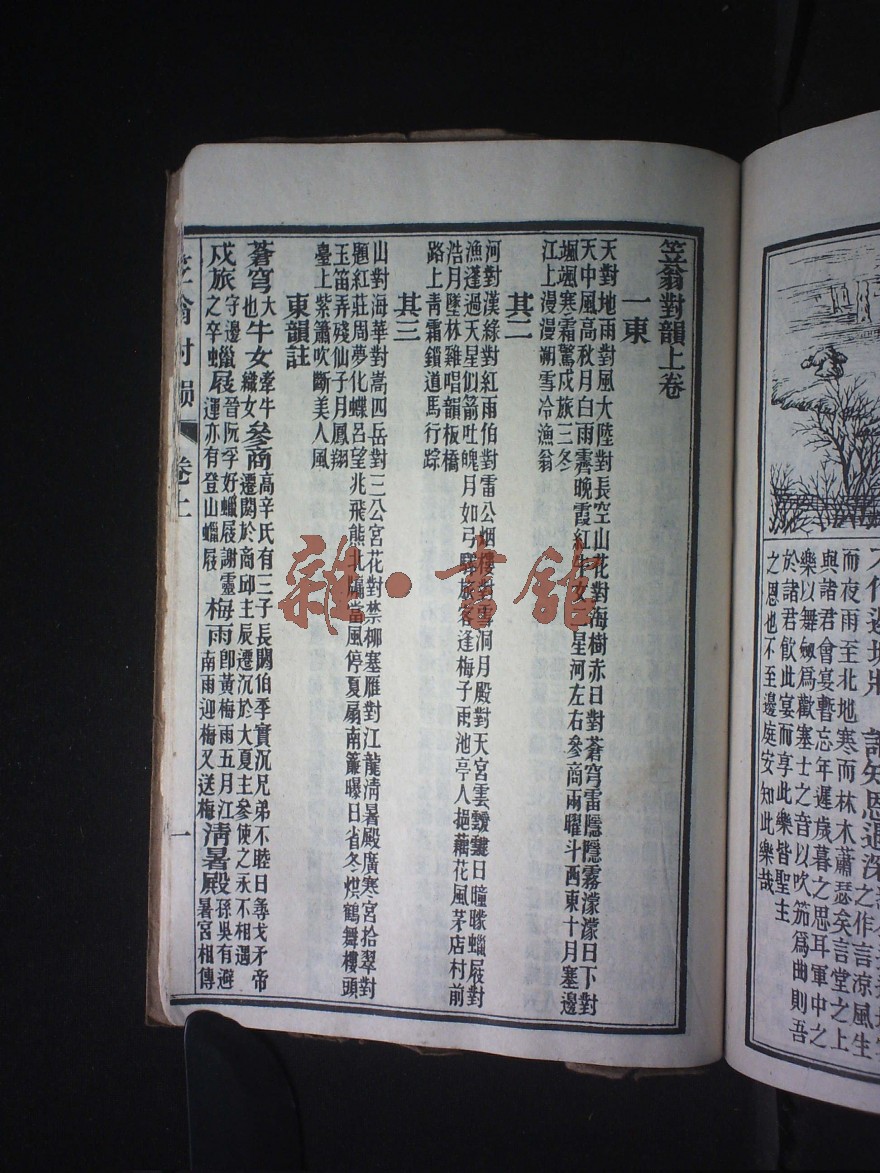 誰知恩遇深
之作言涼風生
而夜雨至北地寒而林木蕭瑟矣言堂之上
與諸君會宴暫忘年遲歲暮之思耳軍中之
樂以舞劒爲歡塞士之音以吹笳爲曲則吾
於諸君飲此宴而享此樂皆聖主
之恩也不至邊庭安知此樂哉
笠翁對韻上卷
一東
天對地雨對風大陸對長空山花對海樹赤日對蒼穹雷隱隱霧濛濛日下對
天中風高秋月白雨霽晚霞紅牛女二星河左右參商兩曜斗西東十月塞邊
颯颯寒霜驚戍旅三冬
江上漫漫朔雪冷漁翁
其二
河對漢綠對紅雨伯對雷公烟樓對雪洞月殿對天宮雲靉靆日曈曚蠟屐對
漁篷過天星似箭吐魄月如弓驛旅客逢梅子雨池亭人挹藕花風茅店村前
浩月墜林雞唱韻板橋
路上青霜鎖道馬行踪
其三
山對海華對嵩四岳對三公宮花對禁柳塞雁對江龍清暑殿廣寒宮拾翠對
題紅莊周夢化蝶呂望兆飛熊北牖當風停夏扇南簾曝日省冬烘鶴舞樓頭
玉笛弄殘仙子月鳳翔
臺上紫簫吹斷美人風
東韻註
蒼穹大也牛女牽牛織女參商高辛氏有三子長閼伯季實沉兄弟不睦日尋戈矛帝遷閼於商邱主辰遷沉於大夏主參使之永不相遇
戍旅守邊之卒蠟屐晉阮孚好蠟屐謝靈運亦有登山蠟屐梅雨卽黃梅雨五月江南雨迎梅又送梅清暑殿孫吳有避暑宮相傳
笠翁對韻 卷上 一
雜·書館